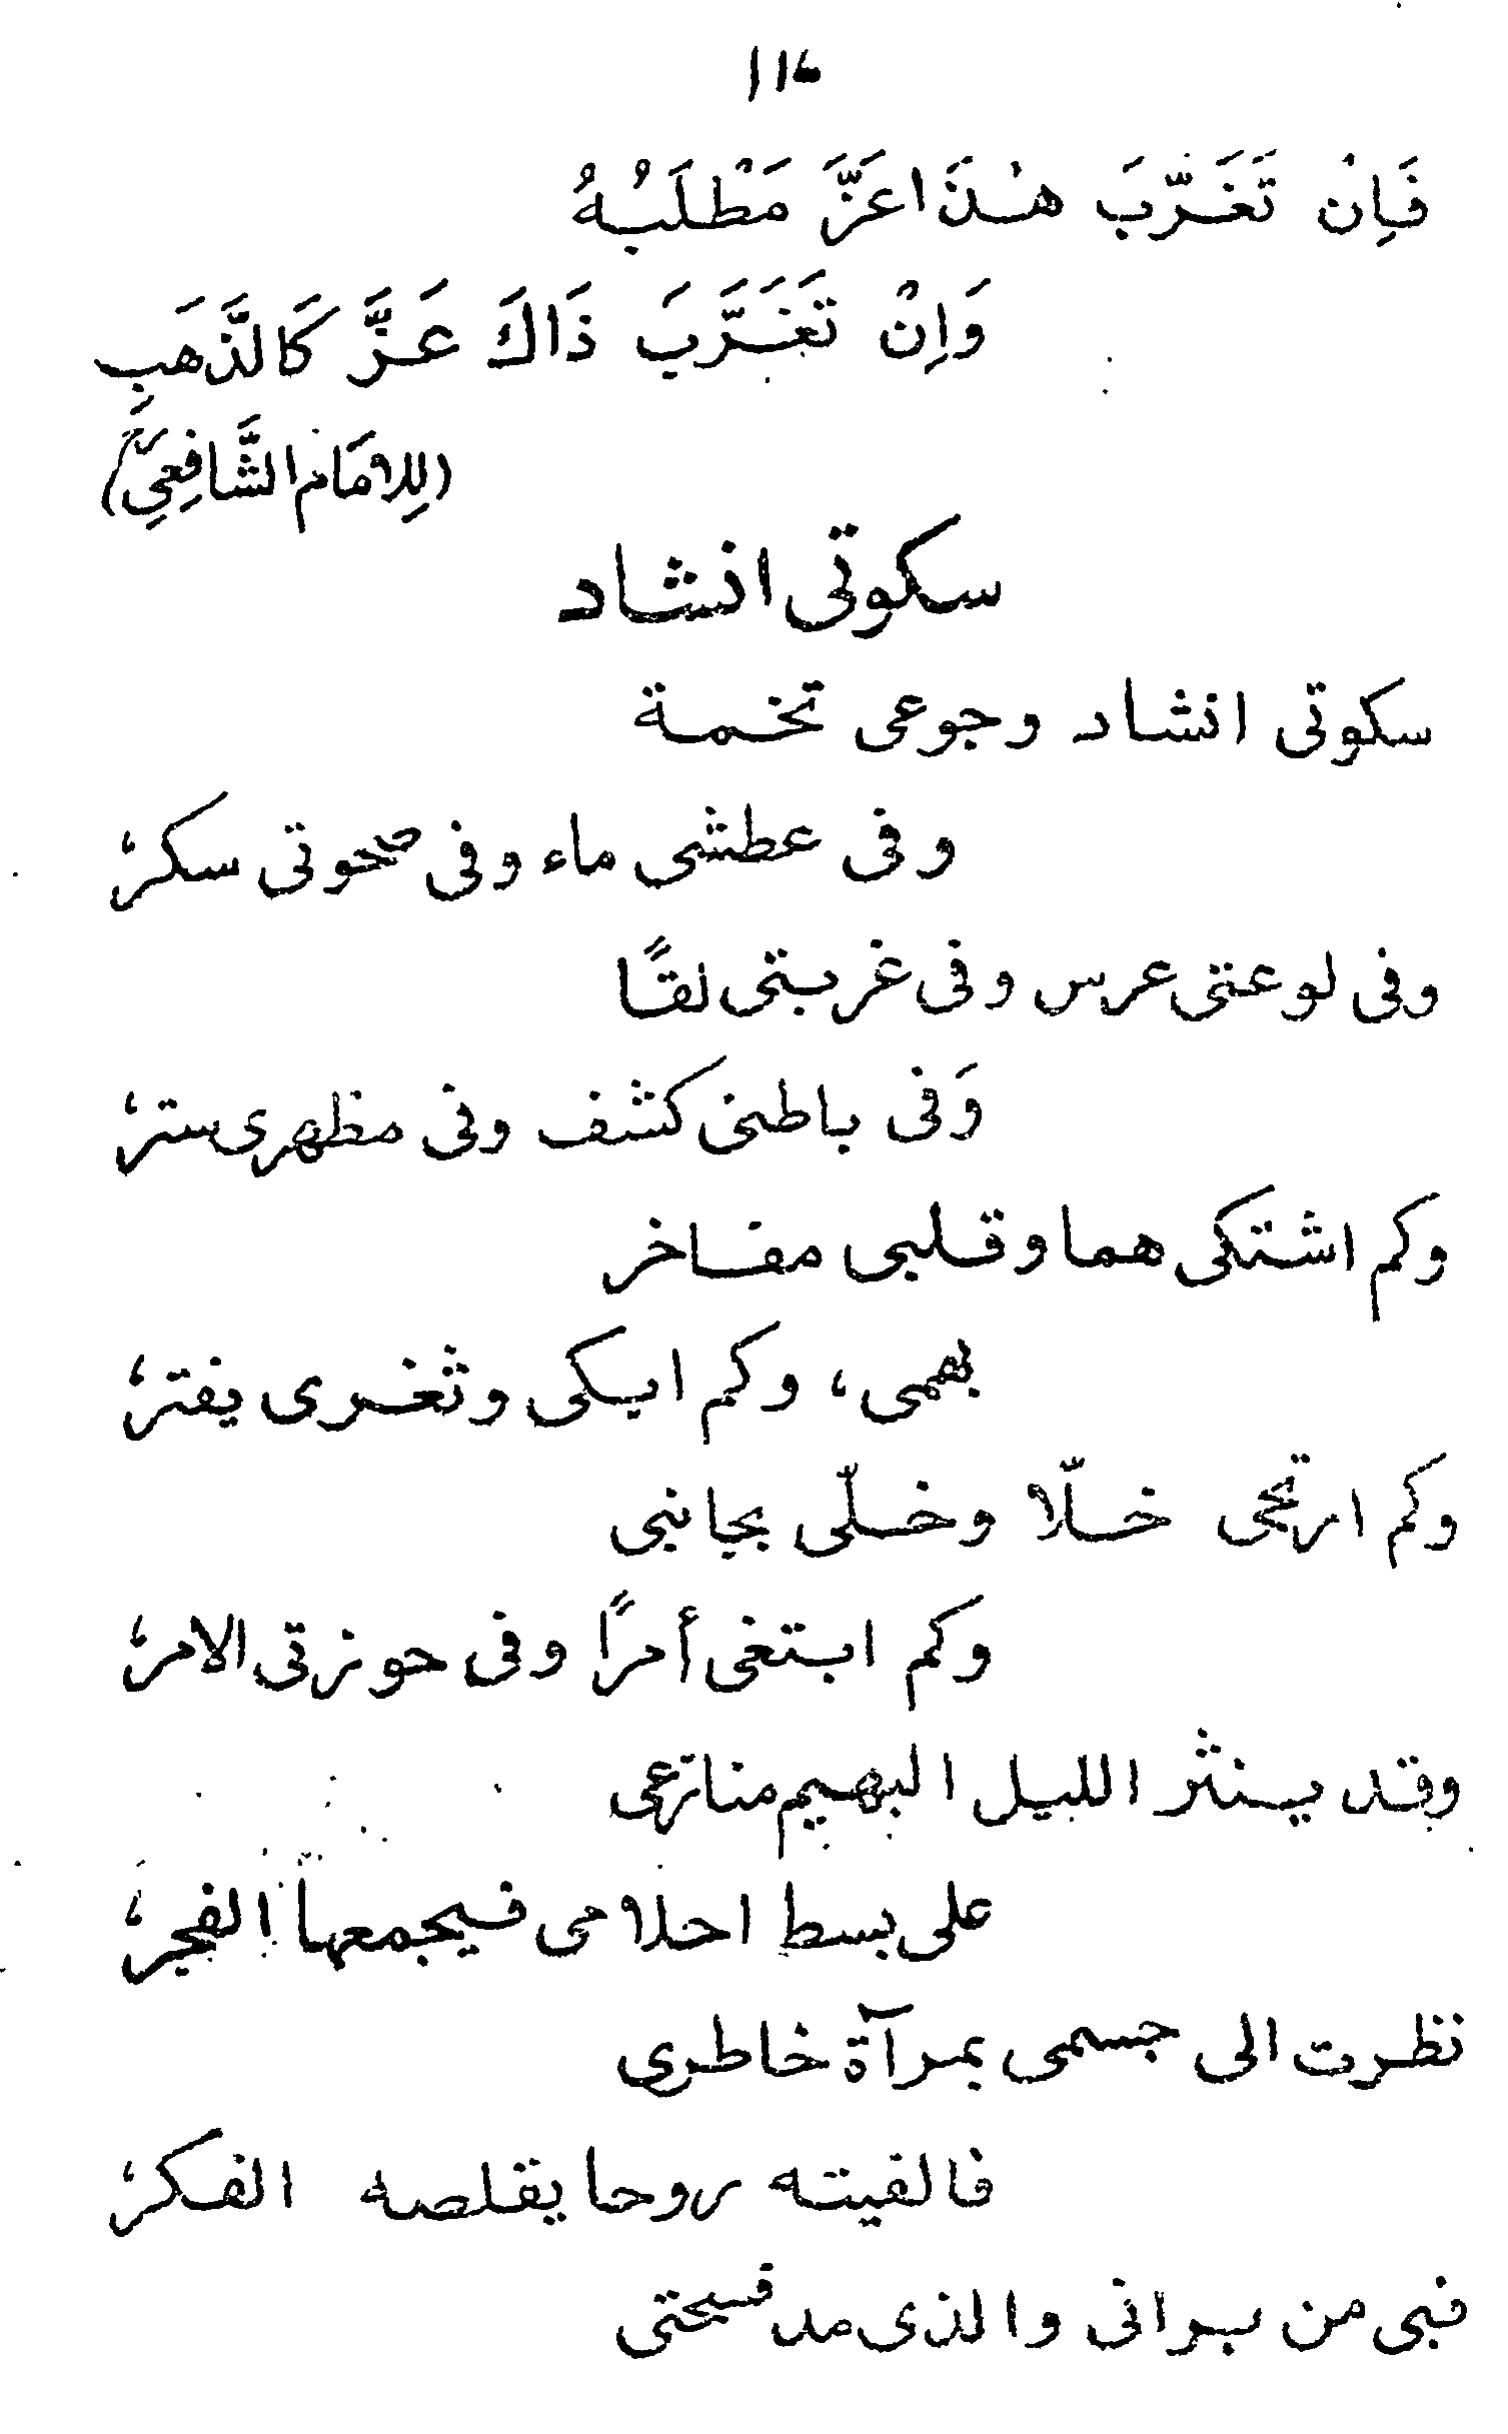 ۱۱۴
فَاِنْ تَغَرَّبَ هٰذَا عَزَّ مَطْلَبُهُ
وَاِنْ تَغَرَّبَ ذَاكَ عَزَّ كَالذَّهَبِ
(لِلامَام الشَّافِعِيؒ)
سكوتى انشاد
سكوتى انشاد وجوعى تخمة
وفى عطشى ماء وفى صحوتى سكرُ،
وفى لوعتى عرس وفى غربتى لقًا
وَفى باطنى كشف وفى مظهرى ستر،
وكم اشتكى هما وقلبى مفاخر
بهمى، وكم ابكى وثغرى يفتر،
وكم ارتجى خلّا وخلّى بجانبى
وكم ابتغى أمرًا وفى حوزتى الامر،
وقد ينثر الليل البهيم منازعى
على بسط احلامى فيجمعها الفجر،
نظرت الى جسمى بمرآة خاطرى
فالفيته روحا يقلصه الفكر،
فبى من برانى والذى مد فسحتى